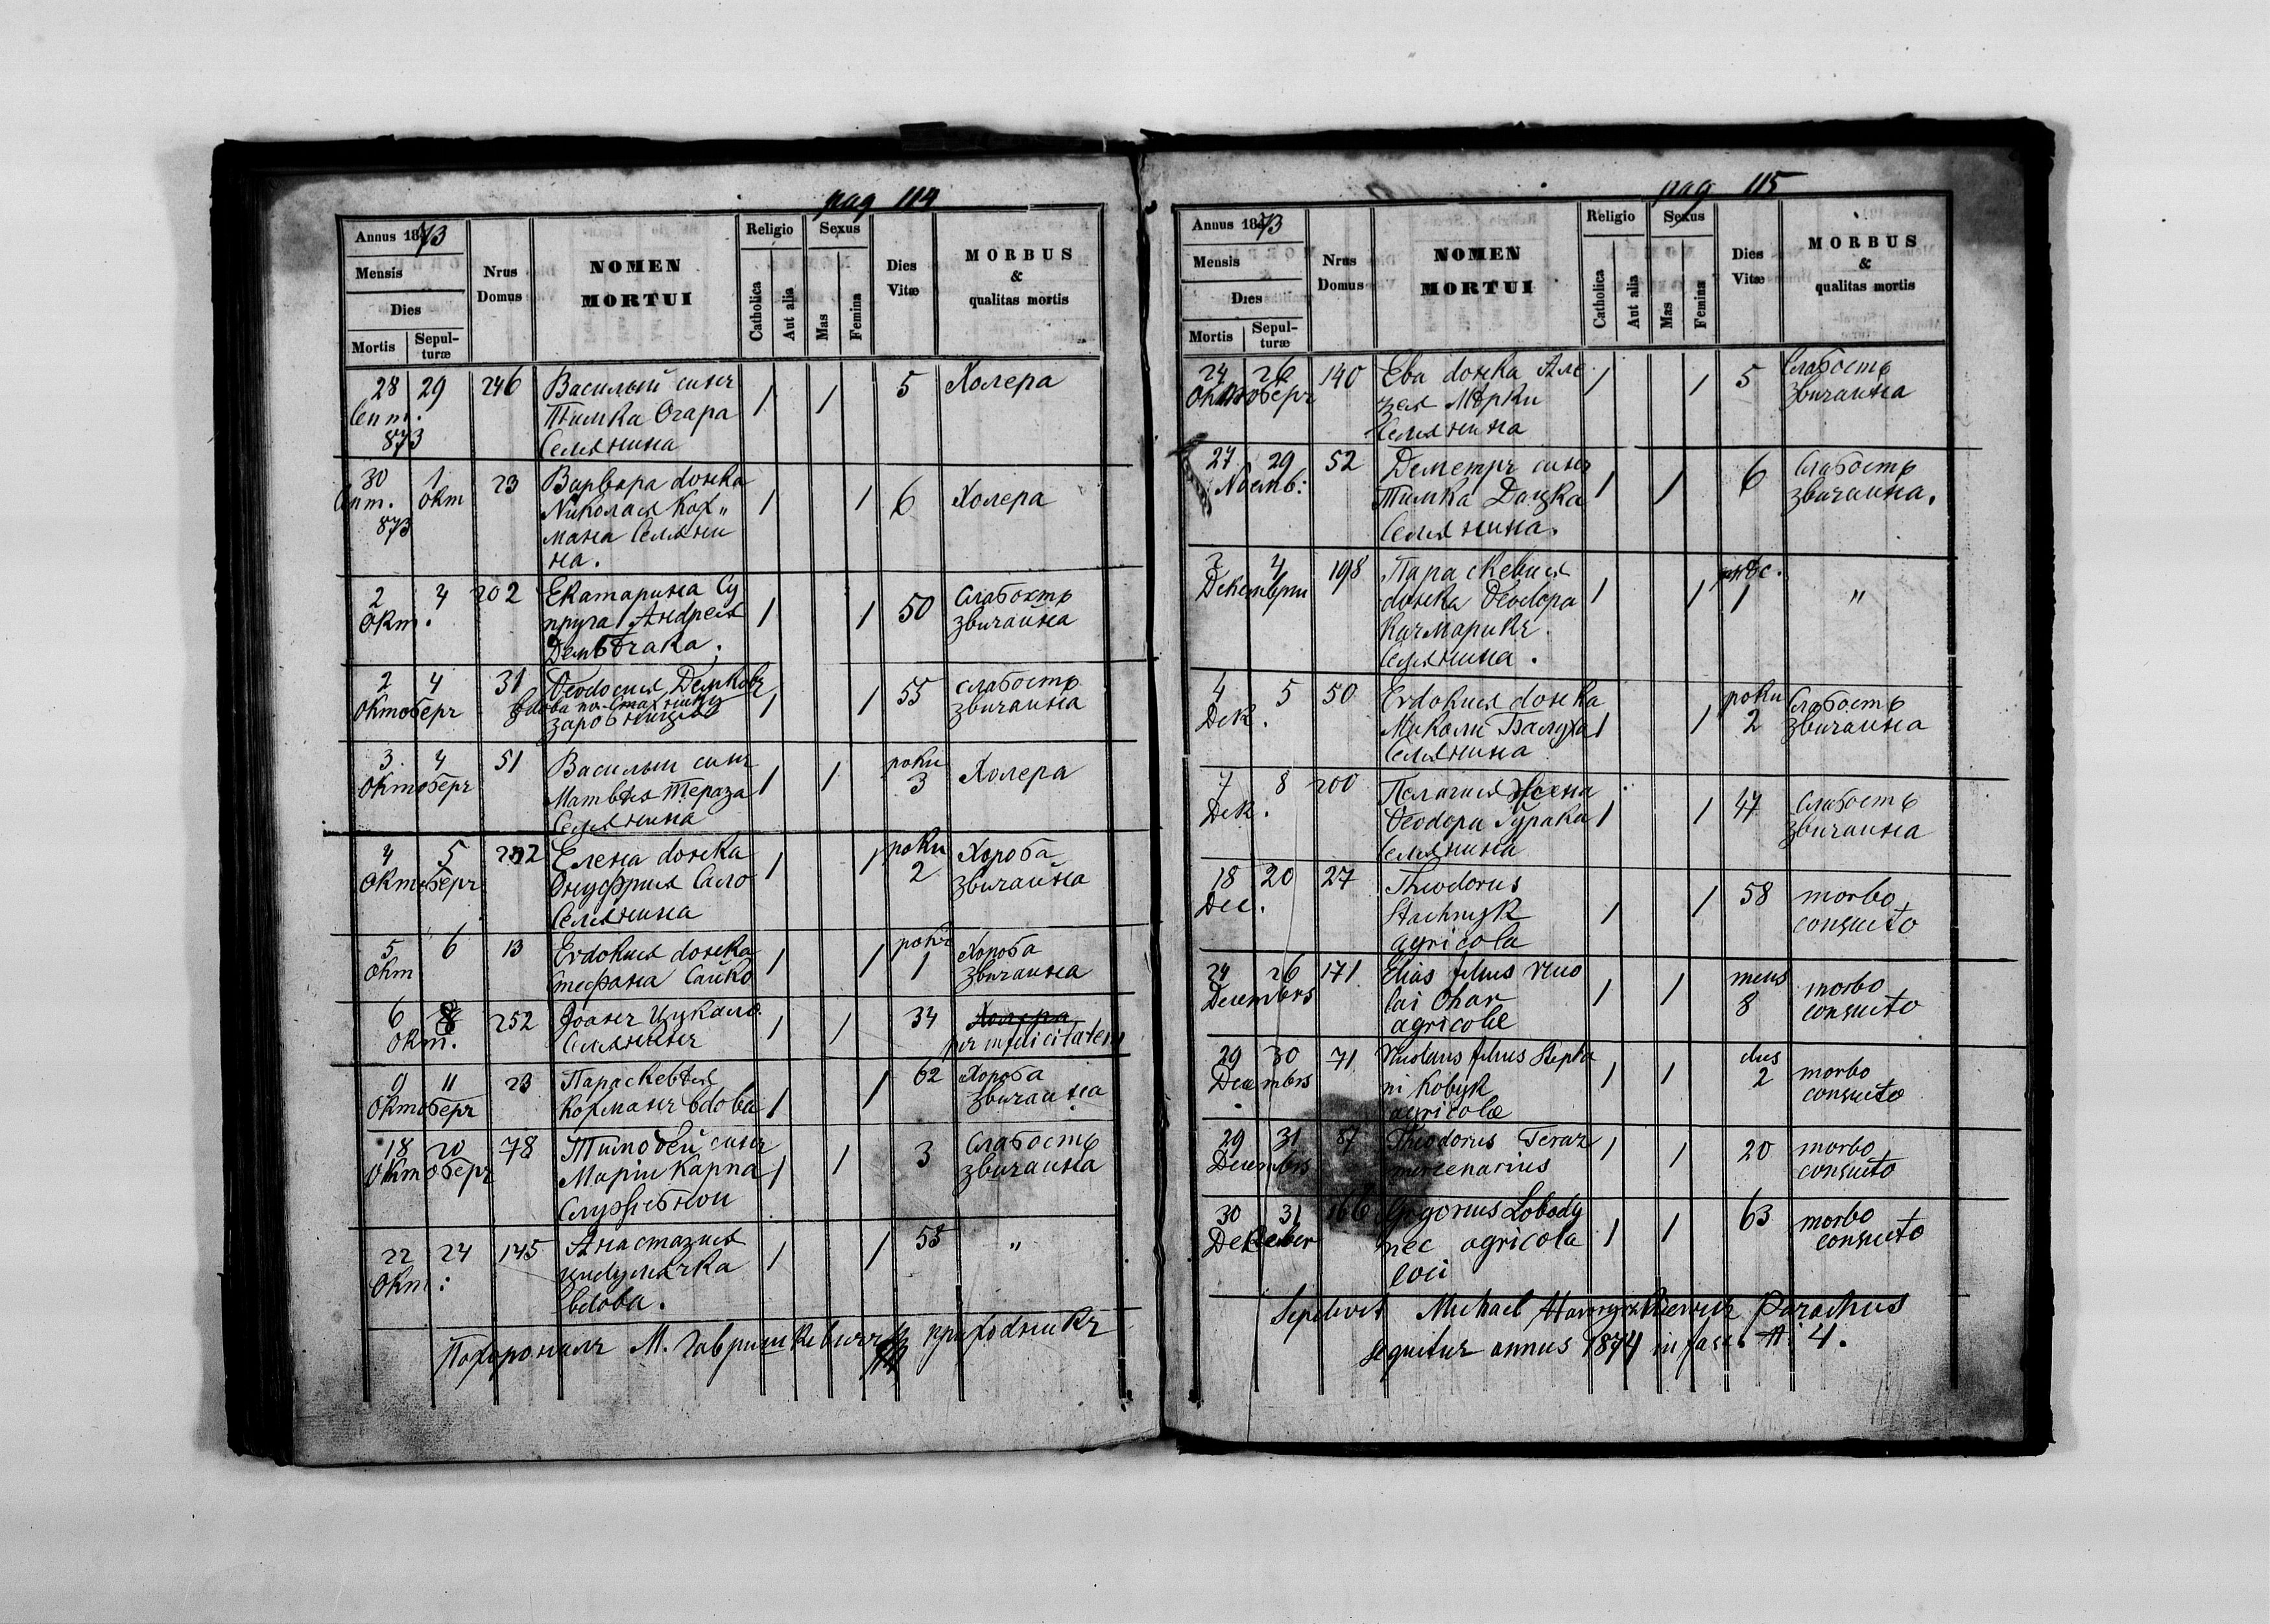 pag 114
Annus 1873
Mensis
Dies
Mortis
Sepulturæ
Nrus Domus
NOMEN MORTUI
Religio
Catholica
Aut alia
Sexus
Mas
Femina
Dies Vitæ
MORBUS & qualitas mortis
28 29 246 Василый сынъ 1 1 5 Холера
Септ. Тымка Огара
873 Селянина
30 1 23 Варвара донька 1 1 6 Холера
Септ. Окт Николая Кох„
873 мана Селяни
на.
2 4 202 Екатарина Су 1 1 50 Слабость
Окт. пруга Андрея звичайна
2 4 31 Ѳеодосия Демковъ 1 1 55 слабость
Октоберъ вдова по звичайна
заробница
3 4 51 Василый синъ 1 1 роки 3 Холера
Октоберъ Матвѣя Тераза
Селянина
4 5 Елена донька 1 1 роки 2 Хороба
Октоберъ Онуфрия Сало звичайна
Селянина
5 6 13 Евдокия донька 1 1 рокъ 1 Хороба
Окт Стефана Сайко звичайна
6 8 252 Іоанъ Цукало 1 1 34 Холера
Окт. Селянинъ per infelicitatem
9 11 23 Параскевия 1 1 62 Хороба
Октоберъ Кохманъ вдова звичайна
18 20 78 Тимофей синъ 1 1 3 Слабость
Октоберъ Маріи Карпа звичайна
22 24 145 Анастазия 1 1 55 „
Окт:
вдова.
Похоронилъ М. Гавришкевичъ приходникъ
pag 115
Annus 1873
Mensis
Dies
Mortis
Sepulturæ
Nrus Domus
NOMEN MORTUI
Religio
Catholica
Aut alia
Sexus
Mas
Femina
Dies Vitæ
MORBUS & qualitas mortis
24 26 140 Ева донька Але 1 1 5 Слабость
Октоберъ звичайна
Селянина
27 29 52 Деметръ синъ 1 1 6 Слабость
Ноемб: Тимка Дацка звичайна.
Селянина.
4 198 Параскевия 1 1 1 „
донька Ѳеодора
Качмарикъ
Селянина.
4 5 50 Евдокия донька 1 1 роки 2 Слабость
Дек. Миколи звичайна
Селянина
7 8 200 Пелагия жена 1 1 47 Слабость
Дек. Ѳеодора Гурака звичайна
Селянина
18 20 27 Theodorus 1 1 58 morbo
Dec. Stachnyk consueto
agricola
24 26 171 Elias filius Nico 1 1 mens 8 morbo
Decembris lai Ohar consueto
agricolæ
29 30 71 Nicolaus filius Stepha 1 1 dies 2 morbo
Decembris ni Kobyk consueto
agricolæ
29 31 87 Theodorus Teraz 1 1 20 morbo
Decembris mercenarius consueto
30 31 166 Gregorius Lobody 1 1 63 morbo
December nec agricola consueto
loci
Sepelivit Michael Hawryszkiewicz Parochus
sequitur annus 1874 in fasc. 4.